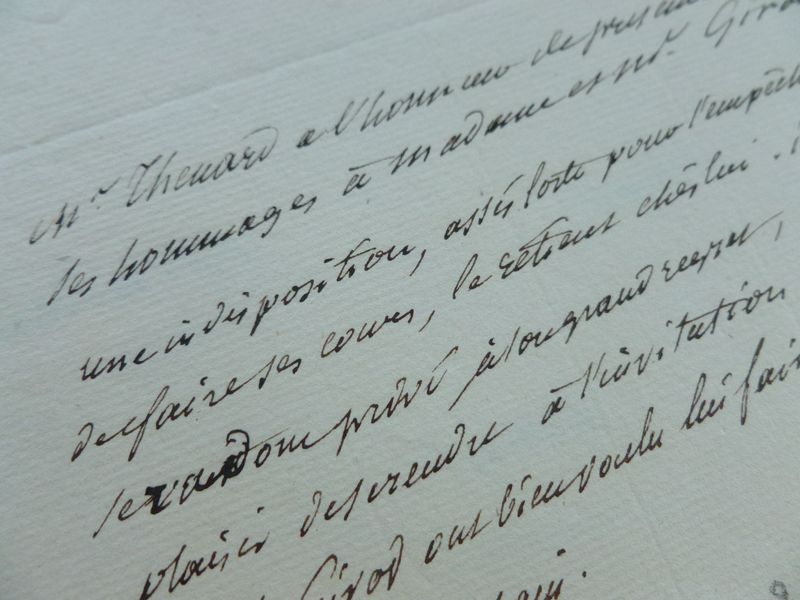 Mr. Thenard a l'honneur de présen
ses hommages à madame et Mr. Giro
une indisposition, assés forte pour l'empêch
de faire ses cours, le retient chés lui.
sera donc privé à son grand regret,
plaisir de se rendre à l'invitation
Girod ont bien voulu lui fair